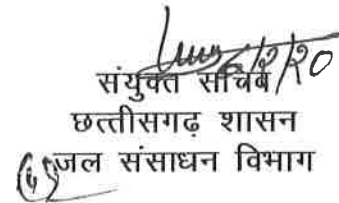 6/2/20
संयुक्त सचिव
छत्तीसगढ़ शासन
जल संसाधन विभाग